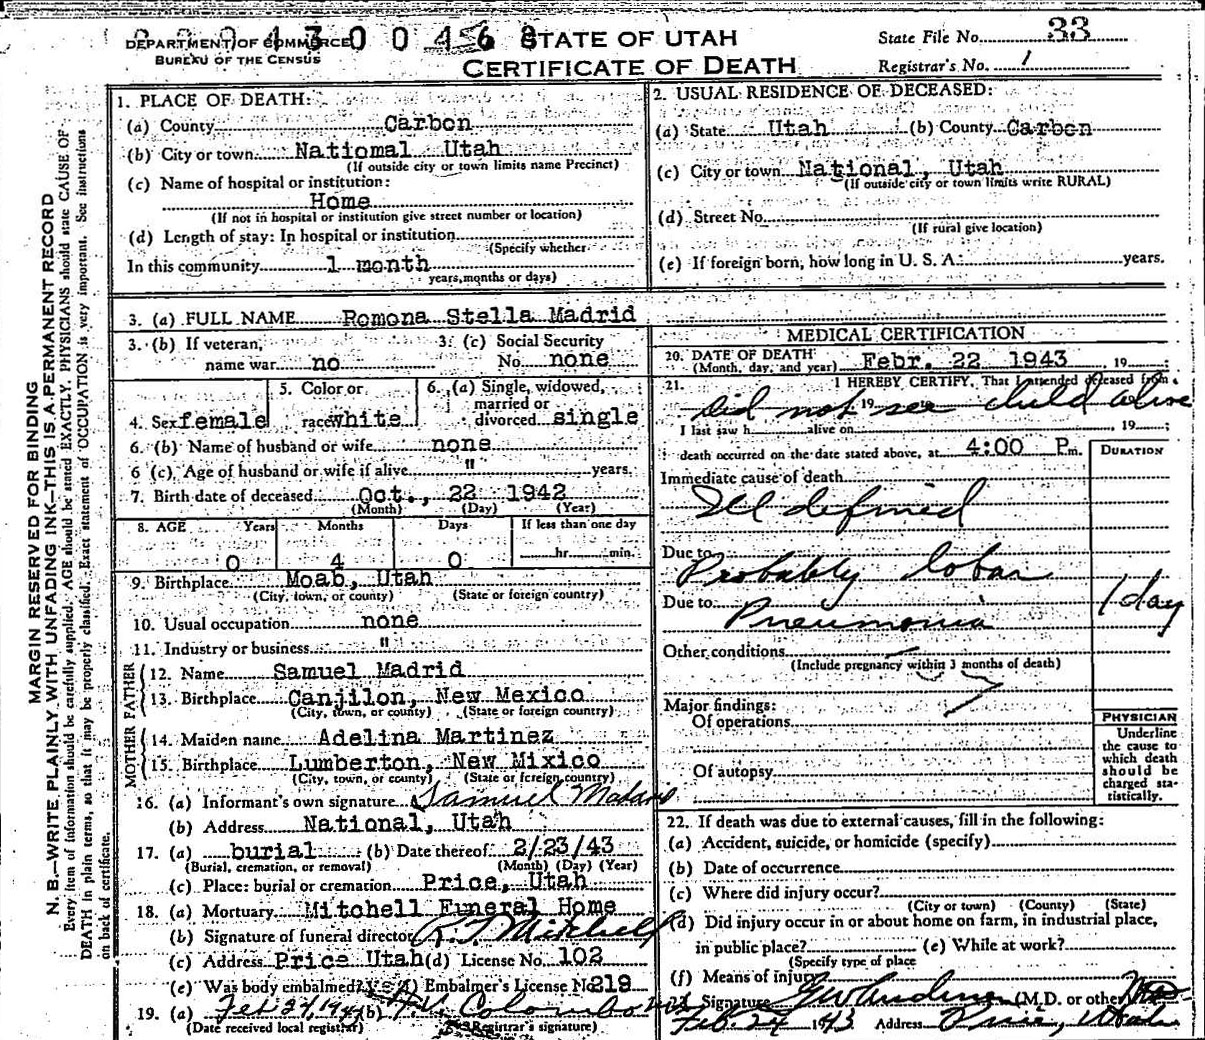 DEPARTMENT OF COMMERCE
BUREAU OF THE CENSUS
STATE OF UTAH
CERTIFICATE OF DEATH
State File No. 33
Registrar's No. 1
MARGIN RESERVED FOR BINDING
N. B.—WRITE PLAINLY WITH UNFADING INK—THIS IS A PERMANENT RECORD
Every item of information should be carefully supplied. AGE should be stated EXACTLY. PHYSICIANS should state CAUSE OF
DEATH in plain terms, so that it may be properly classified. Exact statement of OCCUPATION is very important. See instructions
on back of certificate.
1. PLACE OF DEATH:
(a) County Carbon
(b) City or town National Utah
(If outside city or town limits name Precinct)
(c) Name of hospital or institution:
Home
(If not in hospital or institution give street number or location)
(d) Length of stay: In hospital or institution
(Specify whether
In this community 1 month
years, months or days)
2. USUAL RESIDENCE OF DECEASED:
(a) State Utah (b) County Carbon
(c) City or town National, Utah
(If outside city or town limits write RURAL)
(d) Street No.
(If rural give location)
(e) If foreign born, how long in U. S. A. years.
3. (a) FULL NAME Romona Stella Madrid
3. (b) If veteran,
name war no
3. (c) Social Security
No. none
4. Sex female
5. Color or
race white
6. (a) Single, widowed,
married or
divorced single
6. (b) Name of husband or wife none
6 (c). Age of husband or wife if alive " years.
7. Birth date of deceased Oct., 22 1942
(Month) (Day) (Year)
8. AGE Years Months Days If less than one day
0 4 0 hr. min.
9. Birthplace Moab, Utah
(City, town, or county) (State or foreign country)
10. Usual occupation none
11. Industry or business "
FATHER
12. Name Samuel Madrid
13. Birthplace Canjilon, New Mexico
(City, town, or county) (State or foreign country)
MOTHER
14. Maiden name Adelina Martinez
15. Birthplace Lumberton, New Mixico
(City, town, or county) (State or foreign country)
16. (a) Informant's own signature Samuel
(b) Address National, Utah
17. (a) burial (b) Date thereof 2/23/43
(Burial, cremation, or removal) (Month) (Day) (Year)
(c) Place: burial or cremation Price, Utah
18. (a) Mortuary Mitchell Funeral Home
(b) Signature of funeral director Mitchell
(c) Address Price Utah (d) License No. 102
(e) Was body embalmed? yes (f) Embalmer's License No. 219
19. (a) Feb 27, 1943 (b)
(Date received local registrar) (Registrar's signature)
MEDICAL CERTIFICATION
20. DATE OF DEATH
(Month, day, and year) Febr. 22 1943 19
21. I HEREBY CERTIFY, That I attended deceased from
did not 19 see child alive
I last saw h alive on , 19 ;
death occurred on the date stated above, at 4:00 P m.
DURATION
Immediate cause of death
Ill defined
Due to
Probably lobar
Due to
Pneumonia 1 day
Other conditions
(Include pregnancy within 3 months of death)
Major findings:
Of operations
Of autopsy
PHYSICIAN
Underline
the cause to
which death
should be
charged sta-
tistically.
22. If death was due to external causes, fill in the following:
(a) Accident, suicide, or homicide (specify)
(b) Date of occurrence
(c) Where did injury occur?
(City or town) (County) (State)
(d) Did injury occur in or about home on farm, in industrial place,
in public place? (e) While at work?
(Specify type of place
(f) Means of injury
23. Signature (M.D. or other)
Feb. 24 1943 Address Price, Utah